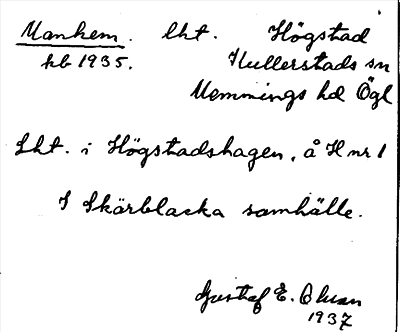 Manhem. lht. Högstad
kb 1935. Kullerstads sn
Memmings hd Ögl
Lht. i Högstadshagen, å H nr 1
I Skärblacka samhälle.
Gustaf E. Olsson
1937